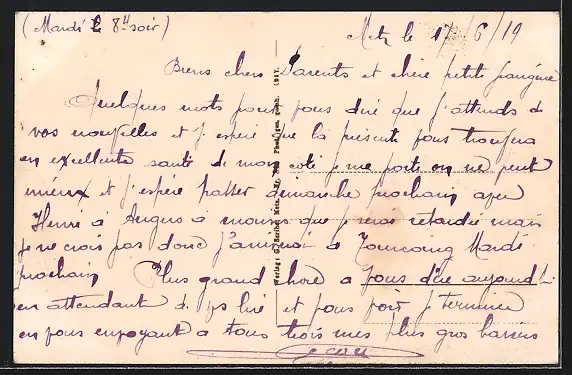 (Mardi le 8h soir) Metz le 17/6/19
Biens chers Parents et chère petite frangine
Quelques mots pour vous dire que j'attends de
vos nouvelles et j'espère que la présente vous trouvera
en excellente santé de mon coté je me porte on ne peut
mieux et j'espère passer dimanche prochain avec
Henri à Angers a moins que je serai retardé mais
je ne crois pas donc j'arriverai à Tourcoing Mardi
prochain Plus grand chose a vous dire aujourd'hui
en attendant de vs lire et vous voir je termine
en vous envoyant a tous trois mes plus gros baisers
Verlag: G. Barthel, Metz. 1917.